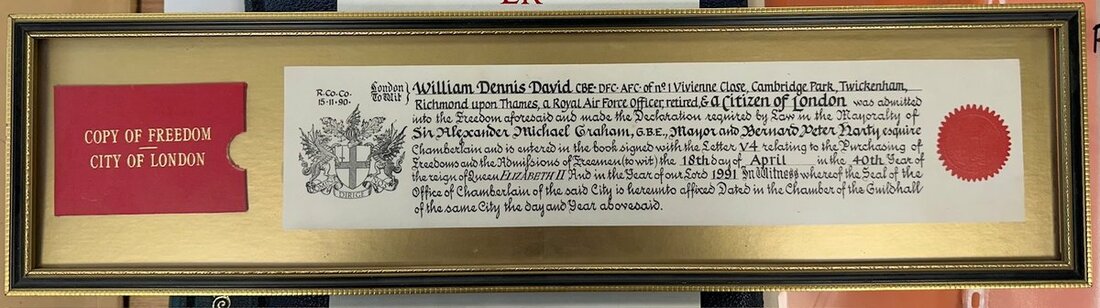 ER
COPY OF FREEDOM
CITY OF LONDON
R.Co.Co.
15.11.90.
London
To Wit
William Dennis David CBE·DFC·AFC· of nº 1 Vivienne Close, Cambridge Park, Twickenham,
Richmond upon Thames, a Royal Air Force Officer, retired, & a Citizen of London was admitted
into the Freedom aforesaid and made the Declaration required by Law in the Mayoralty of
Sir Alexander Michael Graham, G.B.E., Mayor and Bernard Peter Harty esquire
Chamberlain and is entered in the book signed with the Letter V4 relating to the Purchasing of
Freedoms and the Admissions of Freemen (to wit) the 18th day of April in the 40th Year of
the reign of Queen ELIZABETH II And in the Year of our Lord 1991 In Witness whereof the Seal of the
Office of Chamberlain of the said City is hereunto affixed Dated in the Chamber of the Guildhall
of the same City the day and Year abovesaid.
DIRIGE